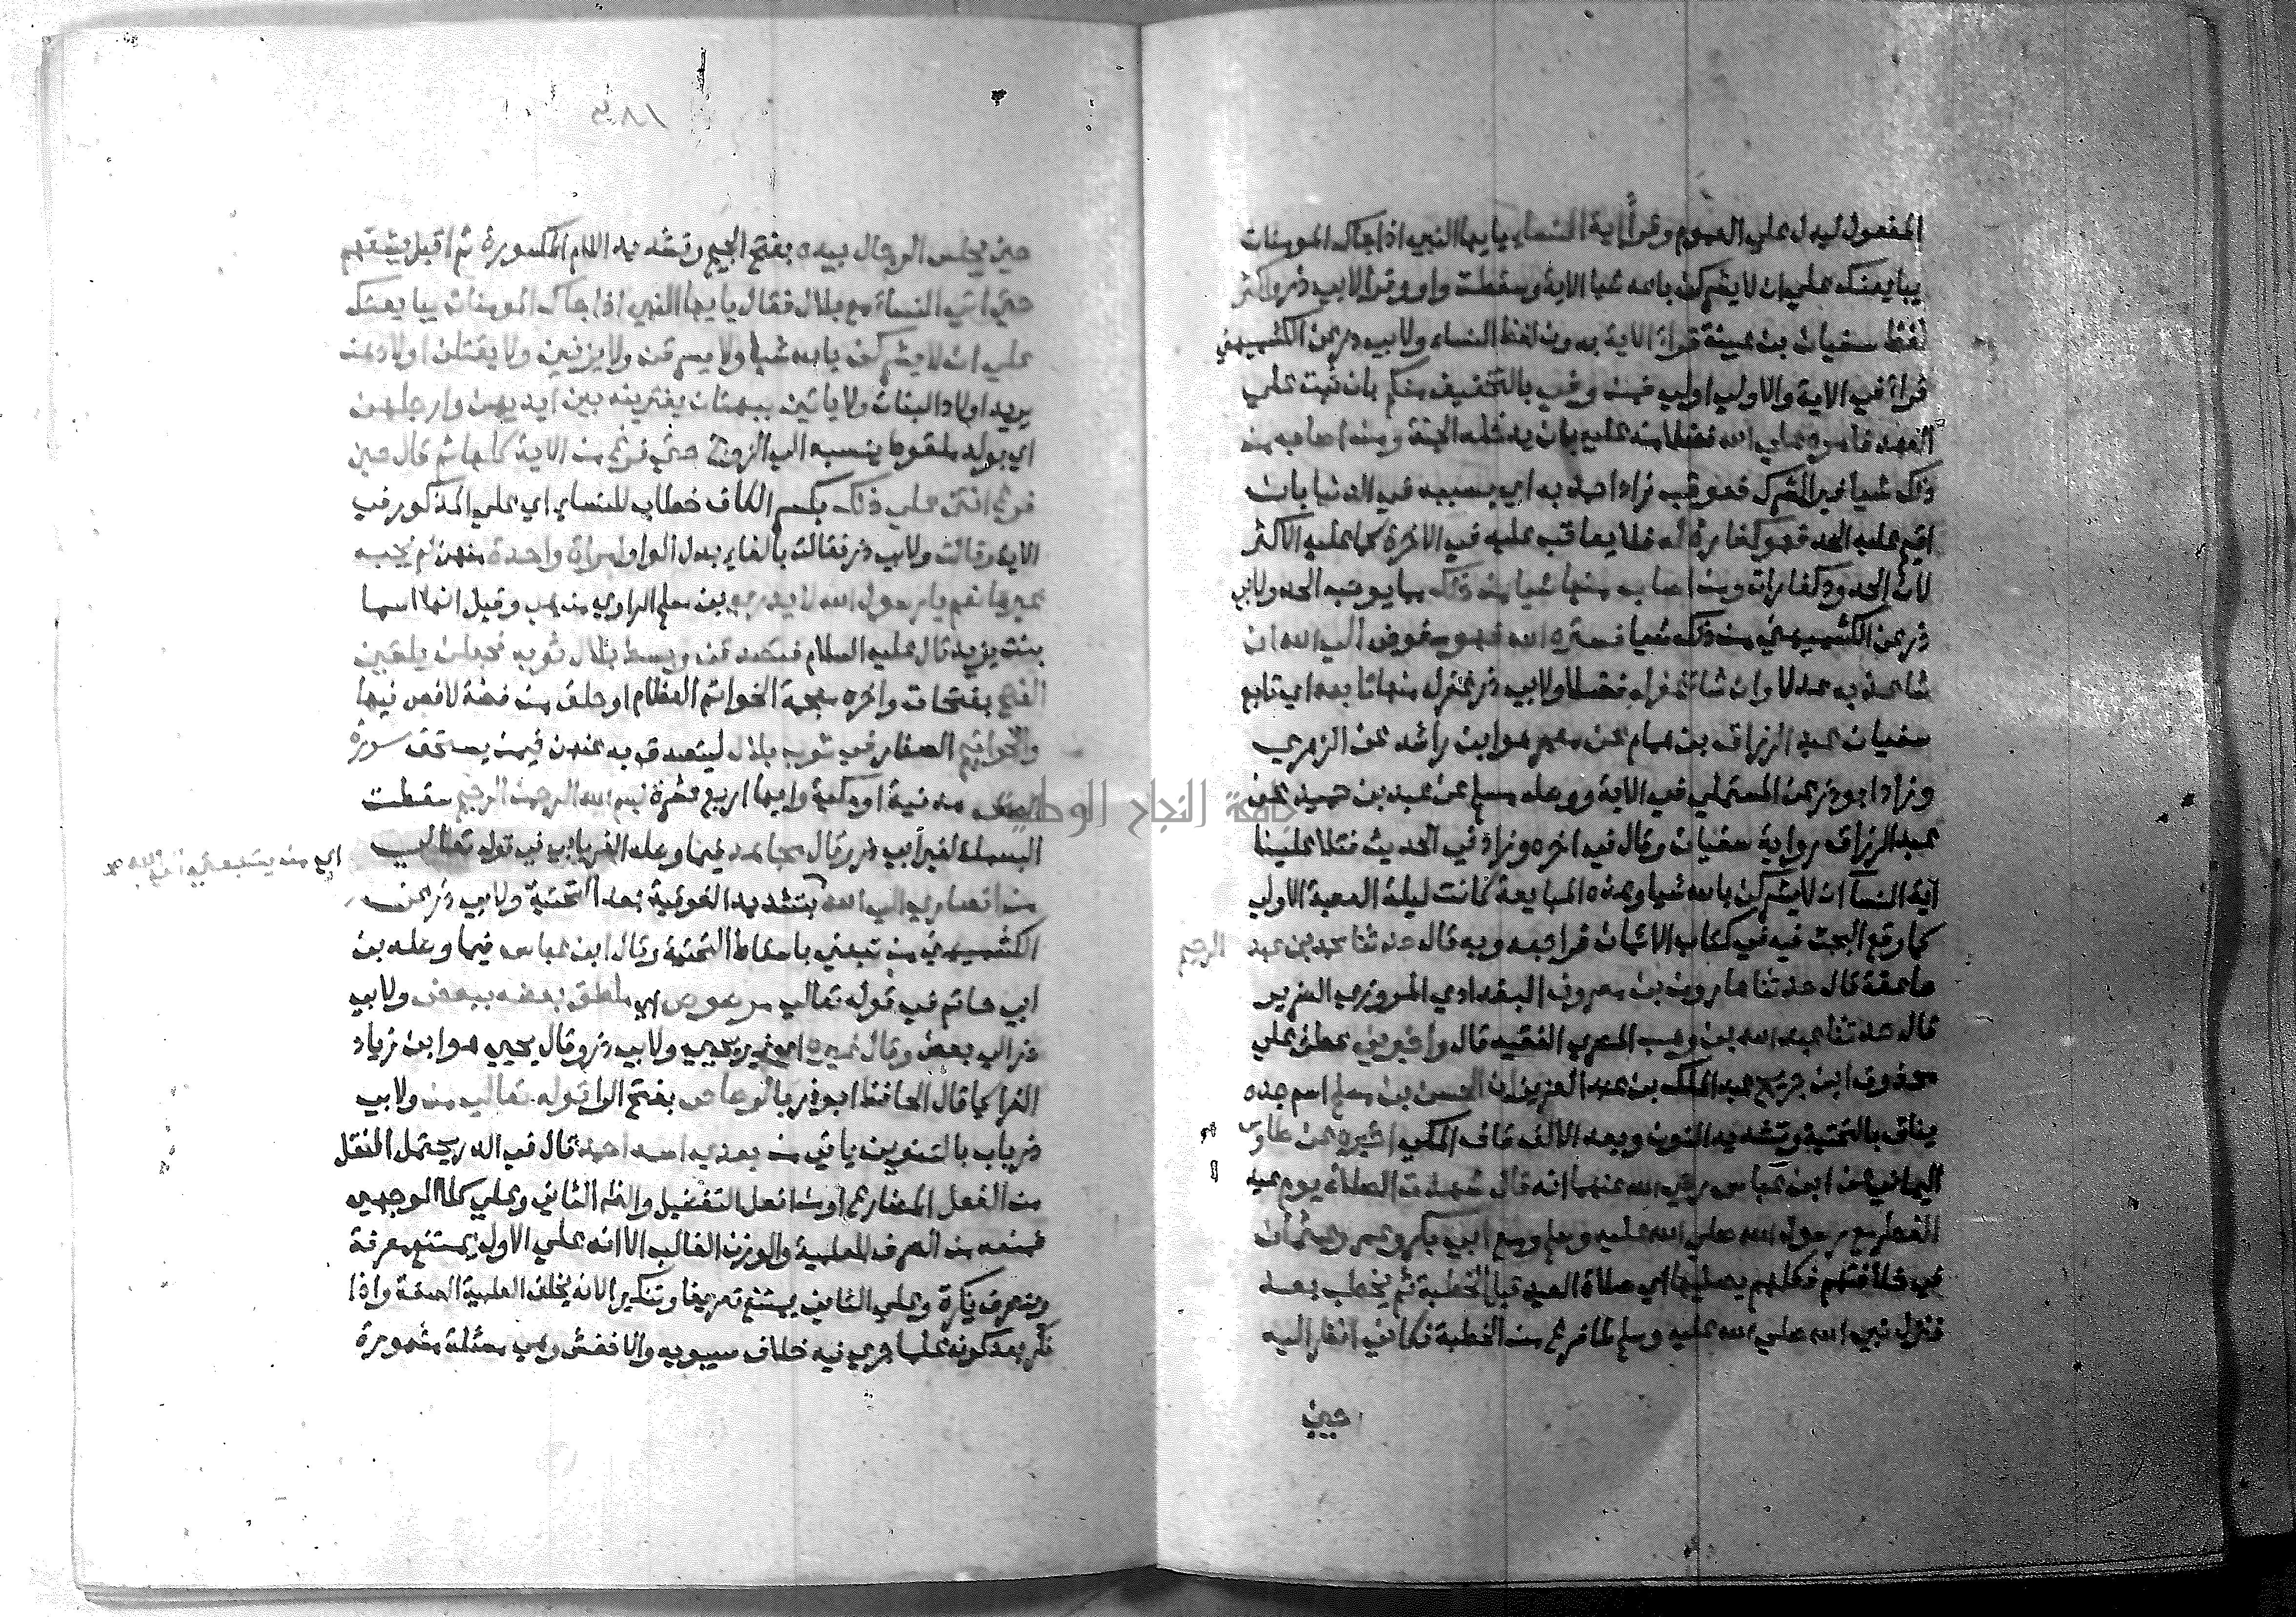 المفعول ليدل على العموم وقرأ آية النساء يا يها النبي اذا جاك المومنات
يبايعنك على ان لا يشركن بالله شيا الاية وسقطت واو وقرا لابي ذر واكثر
لفظ سفيان بن عيينة قراة الاية بدون لفظ النساء ولابي ذر عن الكشميهني
قراة في الاية والاولى اولى فمن وفي بالتخفيف منكم بان ثبت على
العهد فاجره على الله فضلا منه عليه بان يدخله الجنة ومن اصاب من
ذلك شيا غير الشرك فعوقب زاد احمد به اي بسببه في الدنيا بان
اقيم عليه الحد فهو كفارة له فلا يعاقب عليه في الاخرة كما عليه الاكثر
لان الحدود كفارات ومن اصاب منها شيا من ذلك مما يوجب الحد ولابي
ذر عن الكشميهني من ذلك شيا فستره الله فهو مفوض الى الله ان
شا عذبه عدلا وان شا غفر له فضلا ولابي ذر غفر له منها تابعه اي تابع
سفيان عبد الرزاق بن همام عن معمر هو ابن راشد عن الزهري
وزاد ابو ذر عن المستملي في الاية ووصله مسلم عن عبد بن حميد عن
عبد الرزاق رواية سفيان وقال في اخره وزاد في الحديث فتلا علينا
آية النسآ ان لا يشركن بالله شيا وهذه المبايعة كانت ليلة العقبة الاولى
كما وقع البحث فيه في كتاب الايمان فراجعه وبه قال حدثنا محمد بن عبد
الرحيم
صاعقة قال حدثنا هارون بن معروف البغدادي المروزي الضرير
قال حدثنا عبد الله بن وهب المصري الفقيه قال واخبرني عطف على
محذوف ابن جريج عبد الملك بن عبد العزيز ان الحسن بن مسلم اسم جده
يناق بالتحتية وتشديد النون وبعد الالف قاف المكي اخبره عن طاوس
اليماني عن ابن عباس رضي الله عنهما انه قال شهدت الصلاة يوم عيد
الفطر مع رسول الله صلى الله عليه وسلم ومع ابي بكر وعمر وعثمان
في خلافتهم فكلهم يصليها اي صلاة العيد قبل الخطبة ثم يخطب بعد
فنزل نبي الله صلى الله عليه وسلم لما فرغ من الخطبة فكاني انظر اليه
حين
حين يجلس الرجال بيده بفتح الجيم وتشديد اللام المكسورة ثم اقبل يشقهم
حتى اتى النساء مع بلال فقال يا يها النبي اذا جاك المومنات يبايعنك
على ان لا يشركن بالله شيا ولا يسرقن ولا يزنين ولا يقتلن اولادهن
يريد اولاد البنات ولا ياتين ببهتان يفترينه بين ايديهن وارجلهن
اي بولد ملقوط ينسبه الى الزوج حتى فرغ من الاية كلها ثم قال حين
فرغ انتن على ذلك بكسر الكاف خطاب للنساء اي على المذكور في
الاية وقالت ولابي ذر فقالت بالفاء بدل الواو امراة واحدة منهن لم يجبه
غيرها نعم يا رسول الله لا يدري الحسن بن مسلم الراوي من هي وقيل انها اسما
بنت يزيد قال عليه السلام فتصدقن وبسط بلال ثوبه فجعلن يلقين
الفتخ بفتحات واخره معجمة الخواتم العظام او حلق من فضة لا فص فيها
والخواتيم الصغار في ثوب بلال ليتصدق به عنهن فيمن يستحق سورة
الصف مدنية او مكية وايها اربع عشرة بسم الله الرحمن الرحيم سقطت
البسملة لغير ابي ذر وقال مجاهد فيما وصله الفريابي في قوله تعالى
من انصاري الى الله بتشديد الفوقية بعد التحتية ولابي ذر عن
اي من يتبعني الى الله
الكشميهني من تبعني باسقاط التحتية وقال ابن عباس فيما وصله بن
ابي حاتم في قوله تعالى مرصوص اي ملصق بعضه ببعض ولابي
ذر الى بعض وقال غيره اي غير يحيى ولابي ذر وقال يحيى هو ابن زياد
الفرا كما قال الحافظ ابو ذر بالرصاص بفتح الرا قوله تعالى من ولابي
ذر باب بالتنوين ياتي من بعدي اسمه احمد قال في الدر يحتمل النقل
من الفعل المضارع او من افعل التفضيل والظاهر الثاني وعلى كلا الوجهين
فمنعه من الصرف للعلمية والوزن الغالب الا انه على الاول يمتنع معرفة
وينصرف نكرة وعلى الثاني يمتنع تعريفا وتنكيرا لانه يخلف العلمية الصفة واذا
نكر بعد كونه علما جرى فيه خلاف سيبويه والاخفش وهي مسئلة مشهورة
جامعة النجاح الوطنية